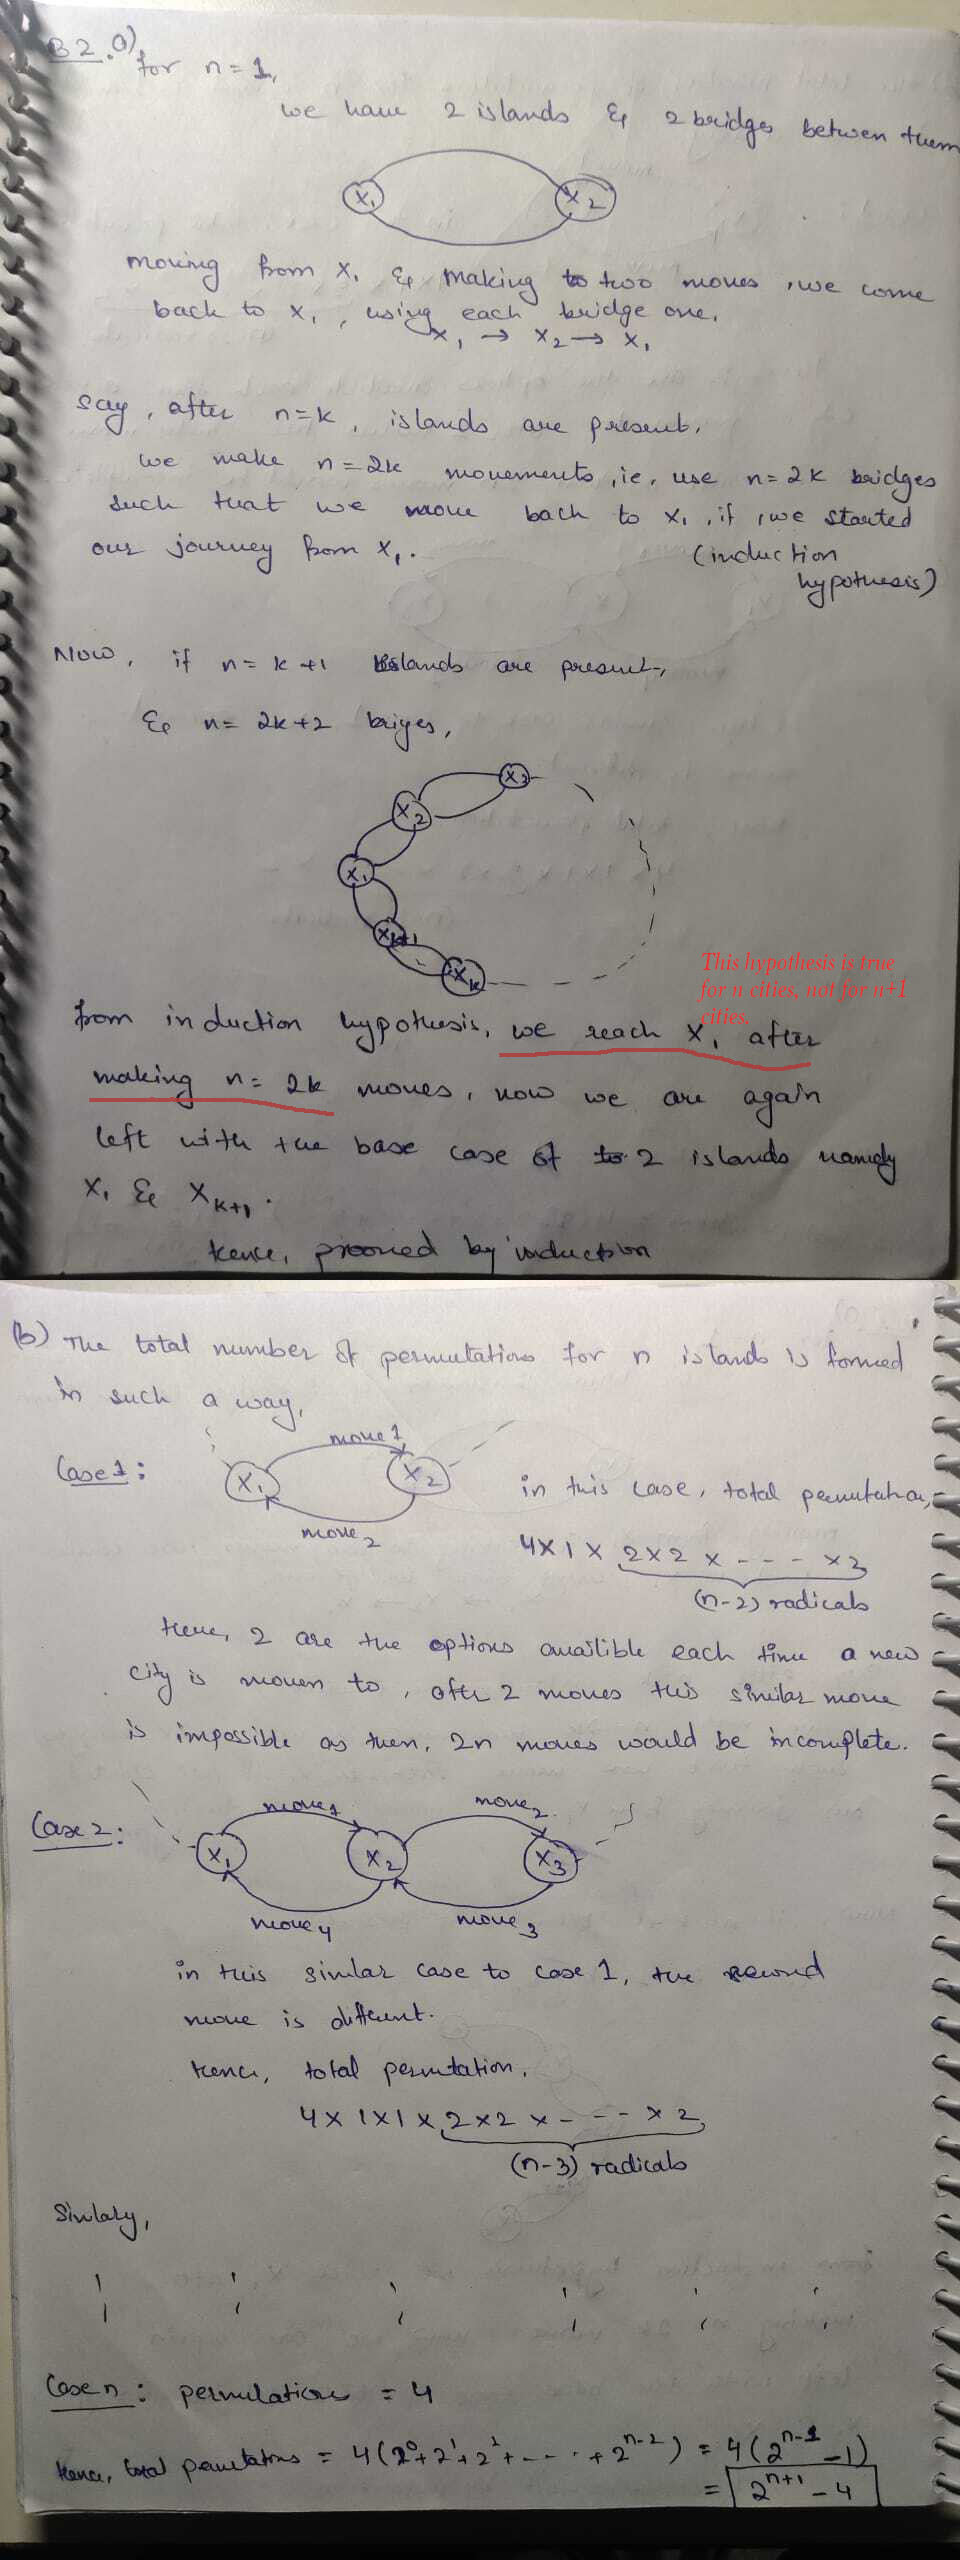 B2. a)
for n = 1,
we have 2 islands & 2 bridges betwen them
X1 X2
moving from X1 & making to two moves, we come
back to X1, using each bridge one.
X1 → X2 → X1
say, after n=k, islands are present.
we make n=2k movements, ie, use n=2k bridges
such that we move back to X1, if, we started
our journey from X1.
(induction
hypothesis)
Now, if n = k+1 islands are present,
& n= 2k+2 briges,
X3
X2
X1
Xk+1
Xk
This hypothesis is true
for n cities, not for n+1
cities.
from induction hypothesis, we reach X1 after
making n= 2k moves, now we are again
left with the base case of to 2 islands namely
X1 & Xk+1.
hence, prooved by induction
(b) The total number of permutations for n islands is formed
in such a way,
Case 1:
move 1
X1 X2
move 2
in this case, total permutation,
4 x 1 x 2 x 2 x - - - - x 2
(n-2) radicals
Here, 2 are the options availible each time a new
city is moven to, after 2 moves this similar move
is impossible as then, 2n moves would be incomplete.
Case 2:
move 1 move 2
X1 X2 X3
move 4 move 3
in this similar case to case 1, the second
move is different.
Hence, total permutation,
4 x 1 x 1 x 2 x 2 x - - - - x 2
(n-3) radicals
Simlarly,
Case n: permulations = 4
hence, total permutations = 4(2^0+2^1+2^2+ - - - · + 2^n-2) = 4(2^n-1 - 1)
= 2^n+1 - 4